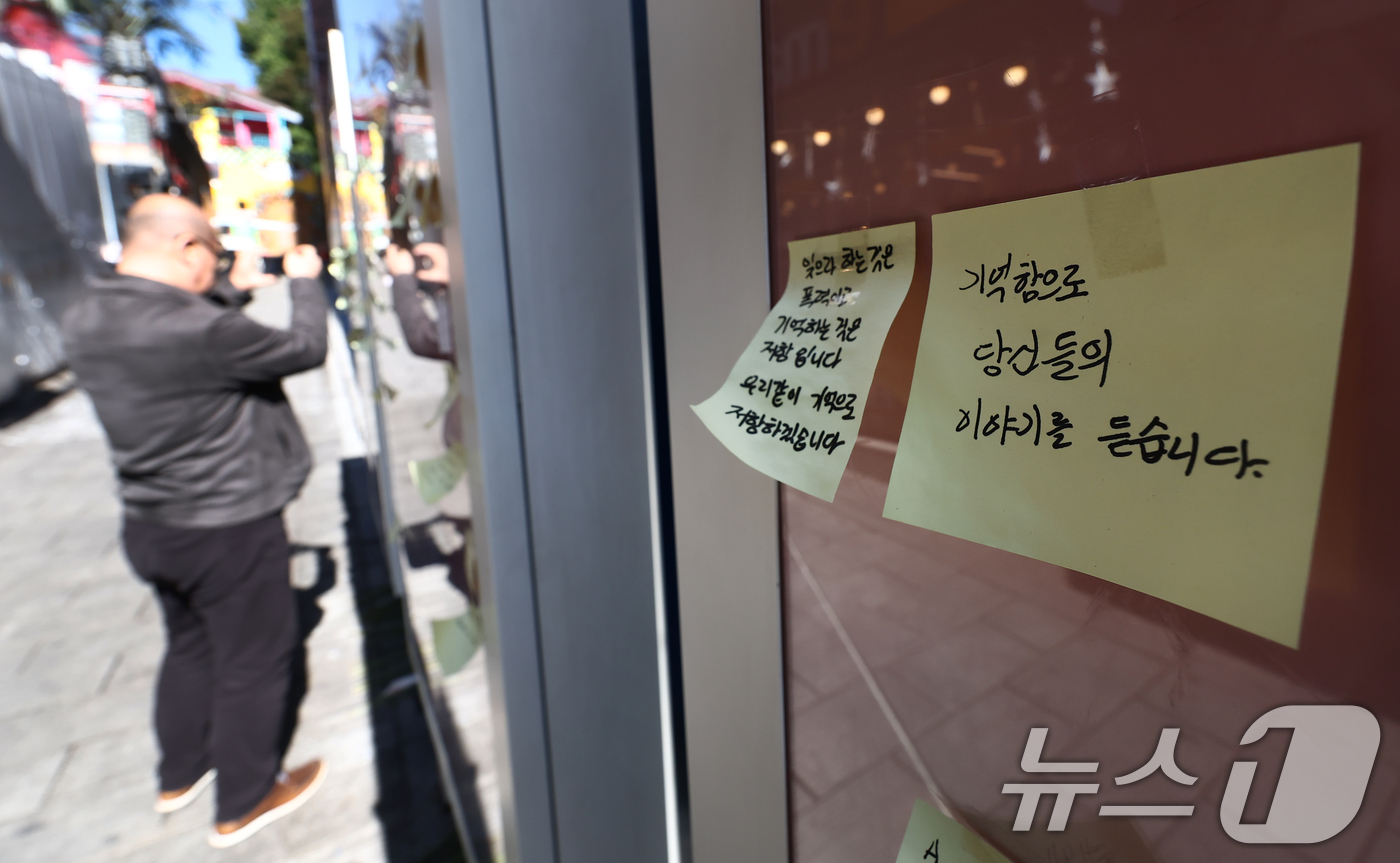 잊으라 하는 것은
폭력이고
기억하는 것은
저항입니다
우리같이 기억으로
저항하겠습니다
기억함으로
당신들의
이야기를 듣습니다.
A
뉴스1